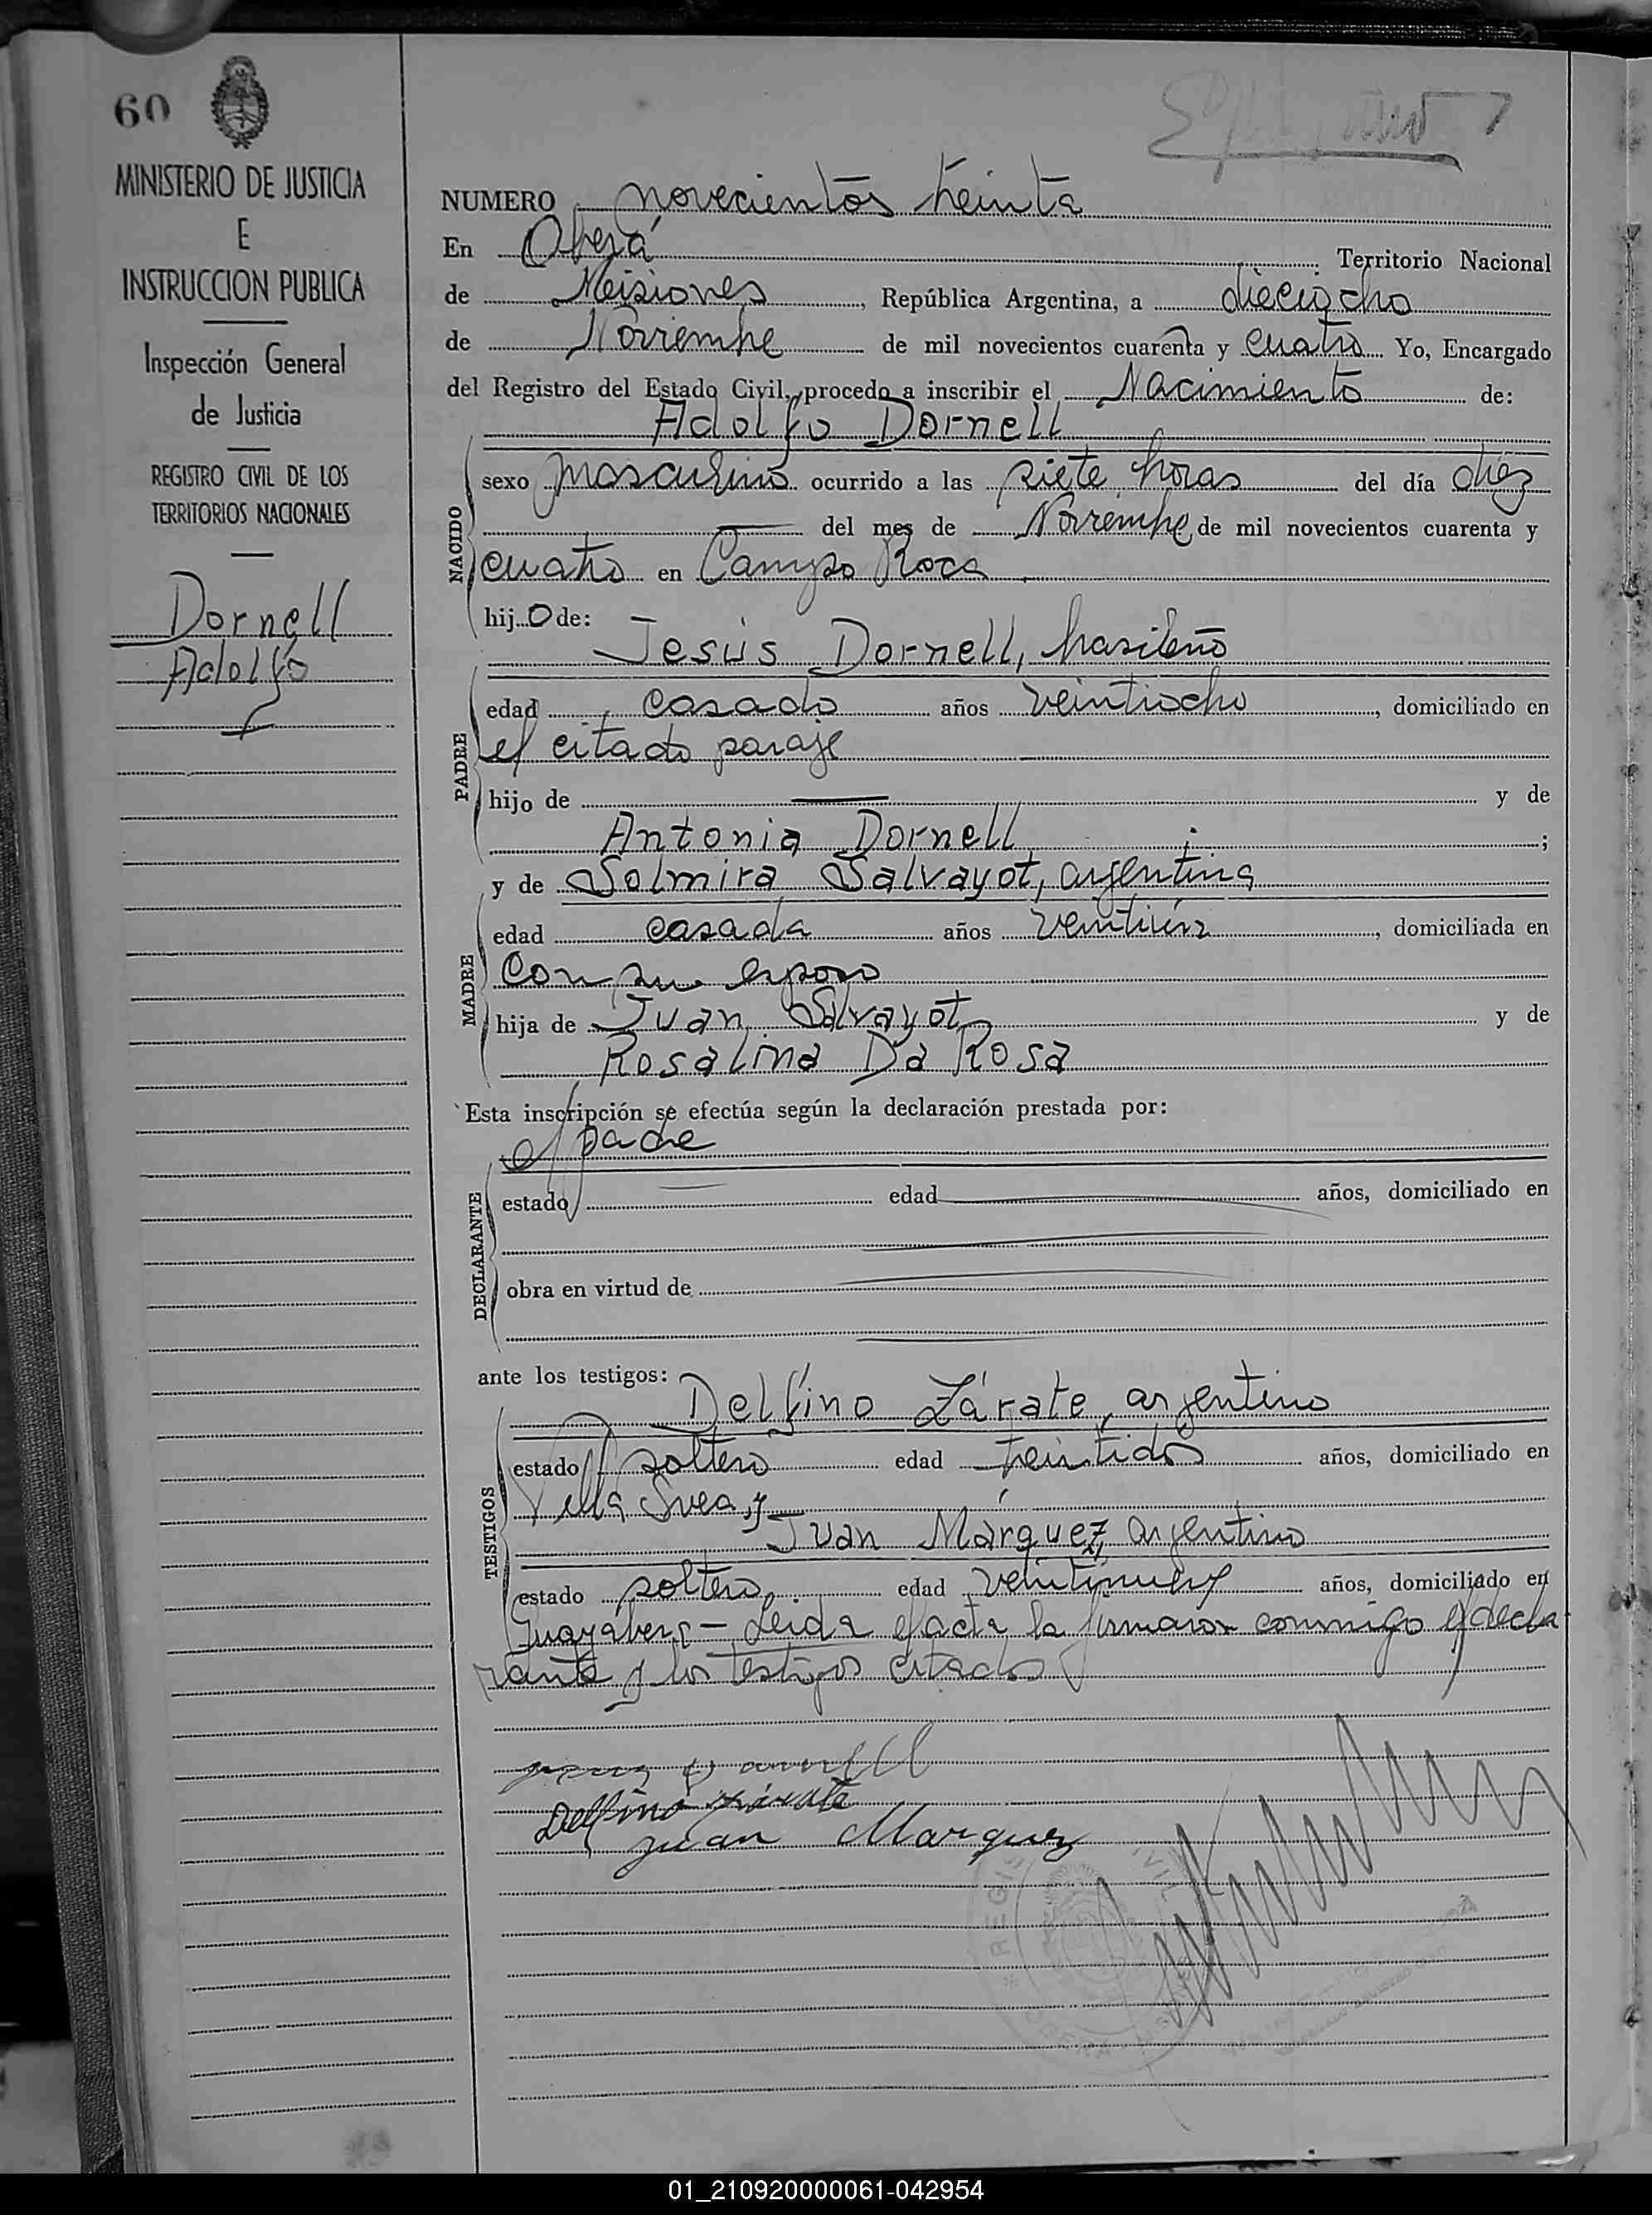 60
MINISTERIO DE JUSTICIA
E
INSTRUCCION PUBLICA
Inspección General
de Justicia
REGISTRO CIVIL DE LOS
TERRITORIOS NACIONALES
Dornell
Adolfo
NUMERO novecientos treinta
En Oberá Territorio Nacional
de Misiones, República Argentina, a dieciocho
de Noviembre de mil novecientos cuarenta y cuatro Yo, Encargado
del Registro del Estado Civil, procedo a inscribir el Nacimiento de:
Adolfo Dornell
NACIDO
sexo masculino ocurrido a las siete horas del día diez
del mes de Noviembre de mil novecientos cuarenta y
cuatro en Campo Roca
hijo de:
Jesús Dornell, brasileño
PADRE
edad casado años veintiocho, domiciliado en
el citado paraje
hijo de y de
Antonia Dornell ;
y de Solmira Salvayot, argentina
MADRE
edad casada años veintiún, domiciliada en
con su esposo
hija de Juan Salvayot y de
Rosalina Da Rosa
Esta inscripción se efectúa según la declaración prestada por:
el padre
DECLARANTE
estado edad años, domiciliado en
obra en virtud de
ante los testigos:
Delfino Zárate, argentino
TESTIGOS
estado soltero edad treintidos años, domiciliado en
Villa Svea, y
Juan Márquez, argentino
estado soltero, edad años, domiciliado en
Guayabera - Leida el acta, la firmaron conmigo el decla
rante y los testigos citados
Delfino Zárate
Juan Marquez
01_210920000061-042954